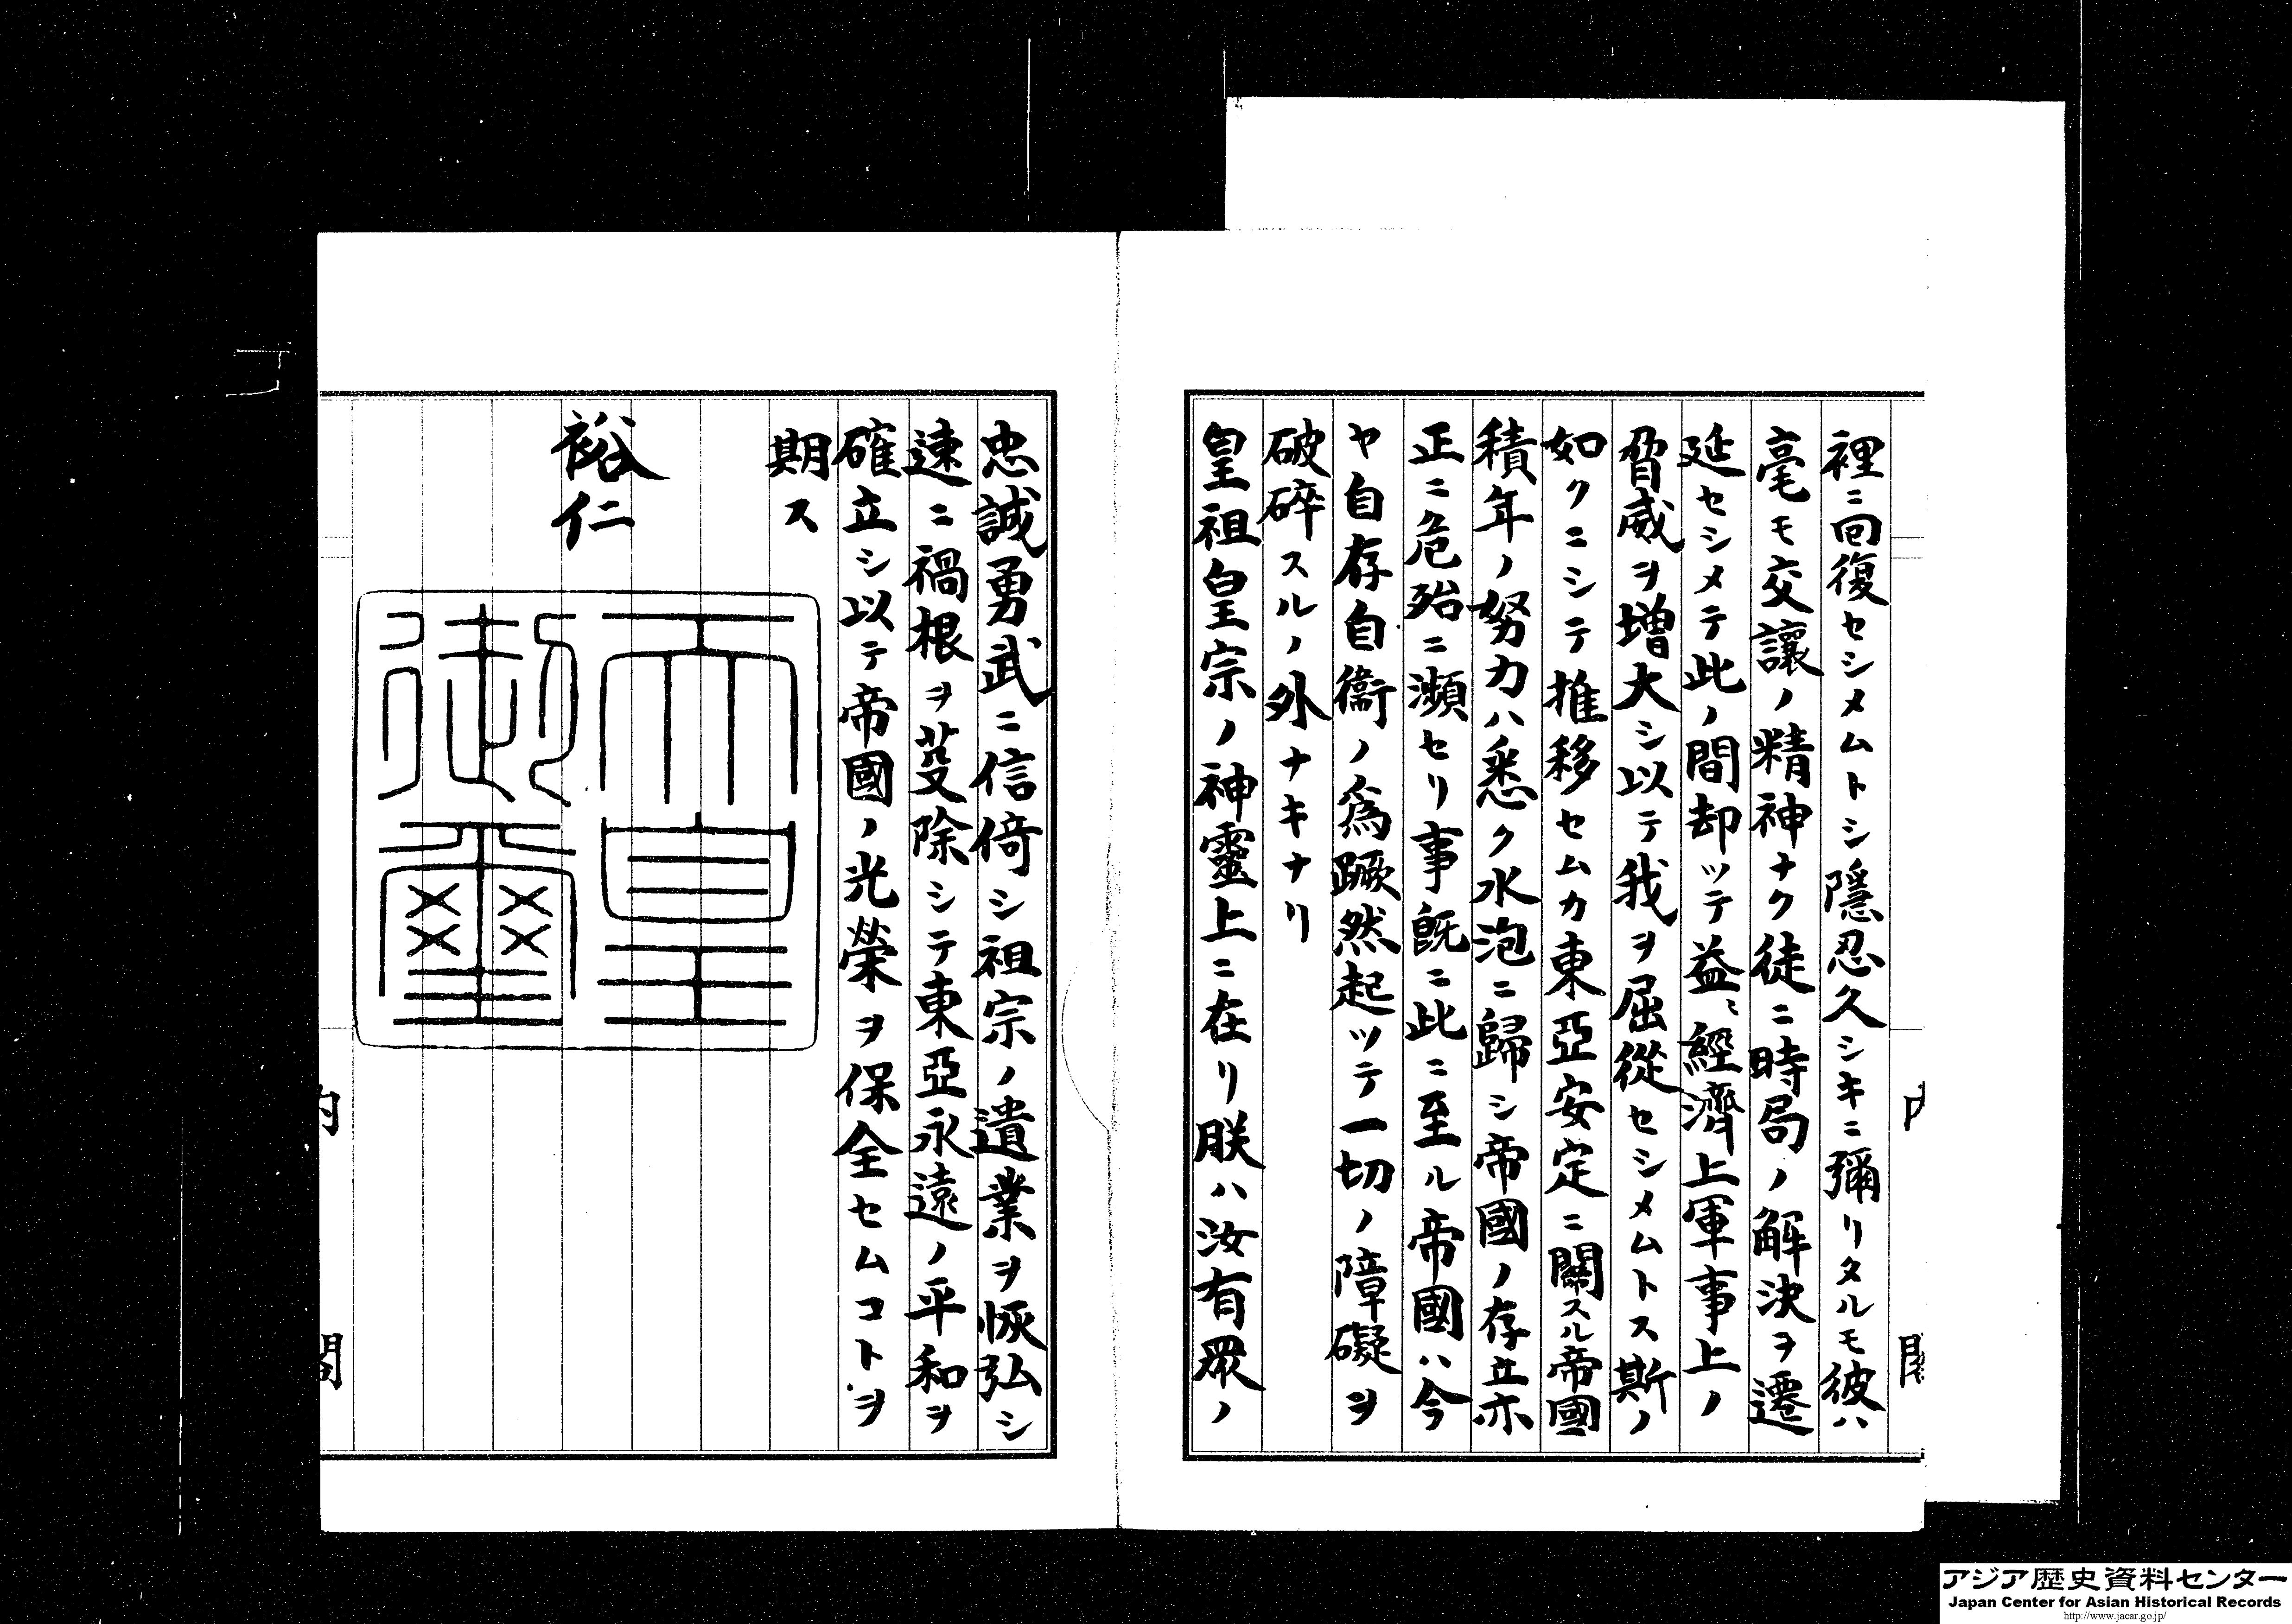 裡ニ回復セシメムトシ隱忍久シキニ彌リタルモ彼ハ
毫モ交讓ノ精神ナク徒ニ時局ノ解決ヲ遷
延セシメテ此ノ間却ツテ益〻經濟上軍事上ノ
脅威ヲ增大シ以テ我ヲ屈從セシメムトス斯ノ
如クニシテ推移セムカ東亞安定ニ關スル帝國
積年ノ努力ハ悉ク水泡ニ歸シ帝國ノ存立亦
正ニ危殆ニ瀕セリ事既ニ此ニ至ル帝國ハ今
ヤ自存自衞ノ爲蹶然起ツテ一切ノ障礙ヲ
破碎スルノ外ナキナリ
皇祖皇宗ノ神靈上ニ在リ朕ハ汝有眾ノ
忠誠勇武ニ信倚シ祖宗ノ遺業ヲ恢弘シ
速ニ禍根ヲ芟除シテ東亞永遠ノ平和ヲ
確立シ以テ帝國ノ光榮ヲ保全セムコトヲ
期ス
裕仁
天皇
御璽
内閣
アジア歴史資料センター
Japan Center for Asian Historical Records
http://www.jacar.go.jp/